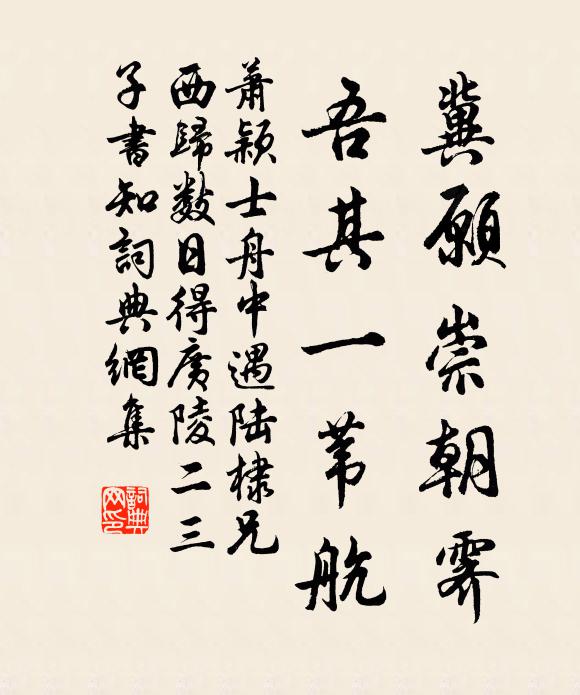 冀願崇朝霽
吾其一葦航
蕭穎士舟中遇陸棣兄
西歸數日得廣陵二三
子書知詞典網集
詞典網印